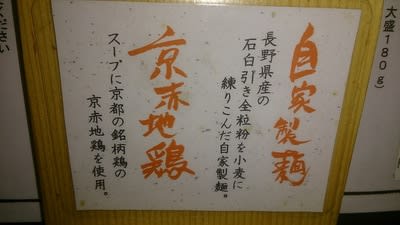 大盛180g)
自家製麺
長野県産の
石臼引き全粒粉を小麦に
練りこんだ自家製麺。
京赤地鶏
スープに京都の銘柄鶏の
京赤地鶏を使用。
ください